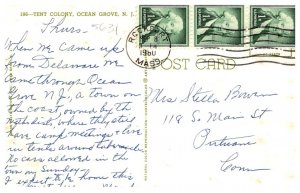 186—TENT COLONY, OCEAN GROVE, N. J.
Thurs
When we came up
from Delaware we
came through Ocean
Grove N.J., a town on
the coast, owned by the
Methodists, where they still
have camp meetings & live
in tents around tabernacle
No cars allowed in the
town on Sunday.
I expect to be home this
1960
MASS
POST CARD
Mrs Stella Bowen
118 So Main St
Putnam
Conn